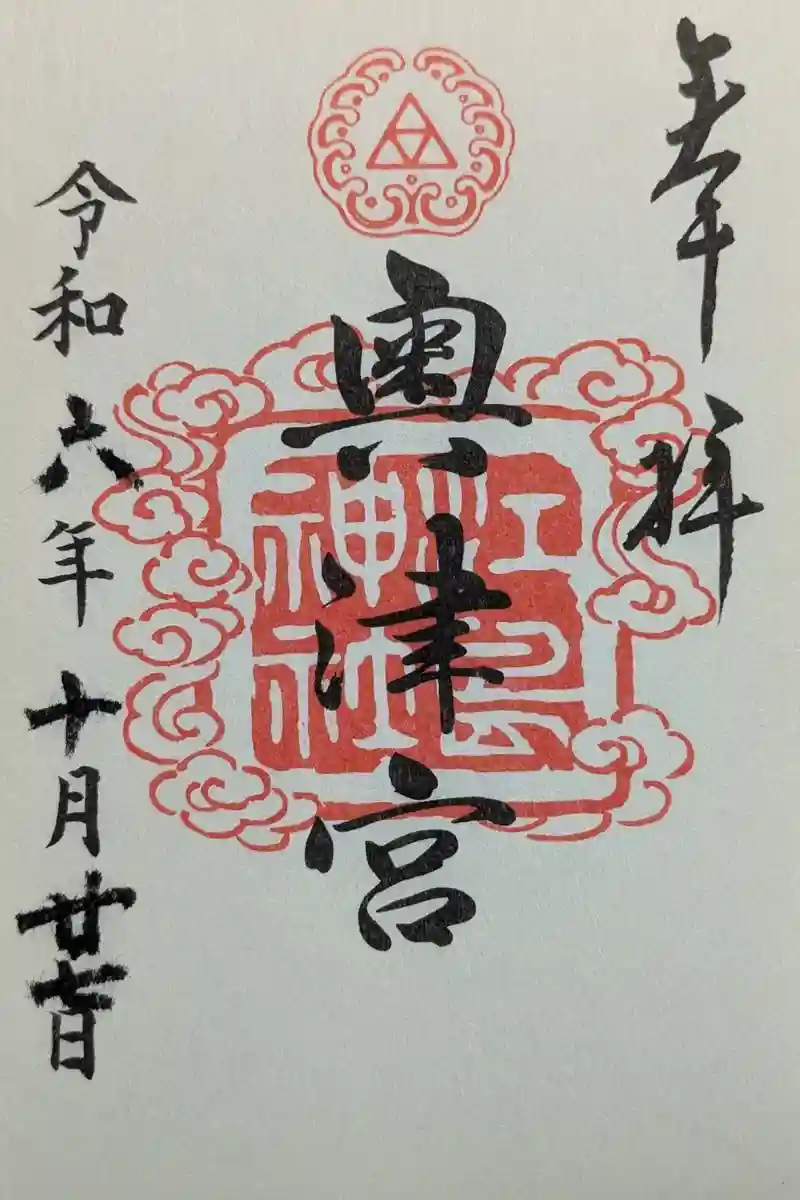 奉拝
奥津宮
江島
神社
令和六年十月廿七日